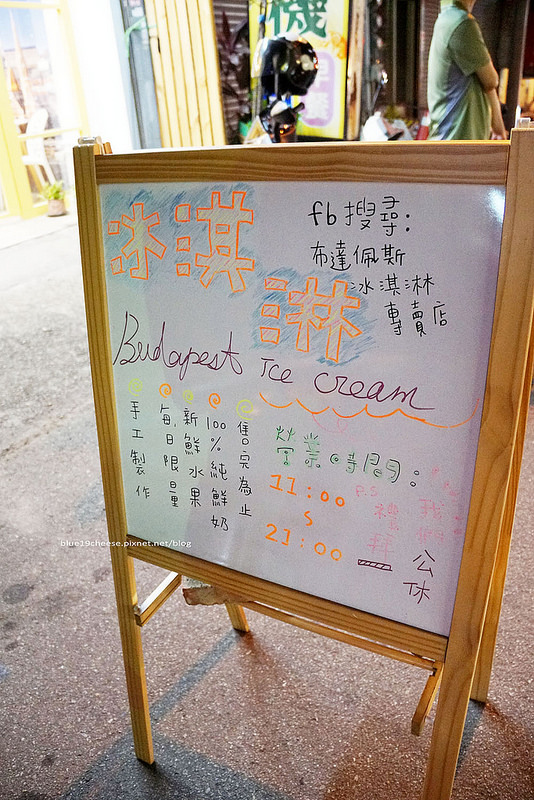 機
冰淇
淋
fb搜尋:
布達佩斯
冰淇淋
專賣店
Budapest Ice cream
手工製作
每日限量
新鮮水果
100%純鮮奶
售完為止
營業時間:
11:00
21:00
P.S
禮拜一
我們
公休
blue19cheese.pixnet.net/blog